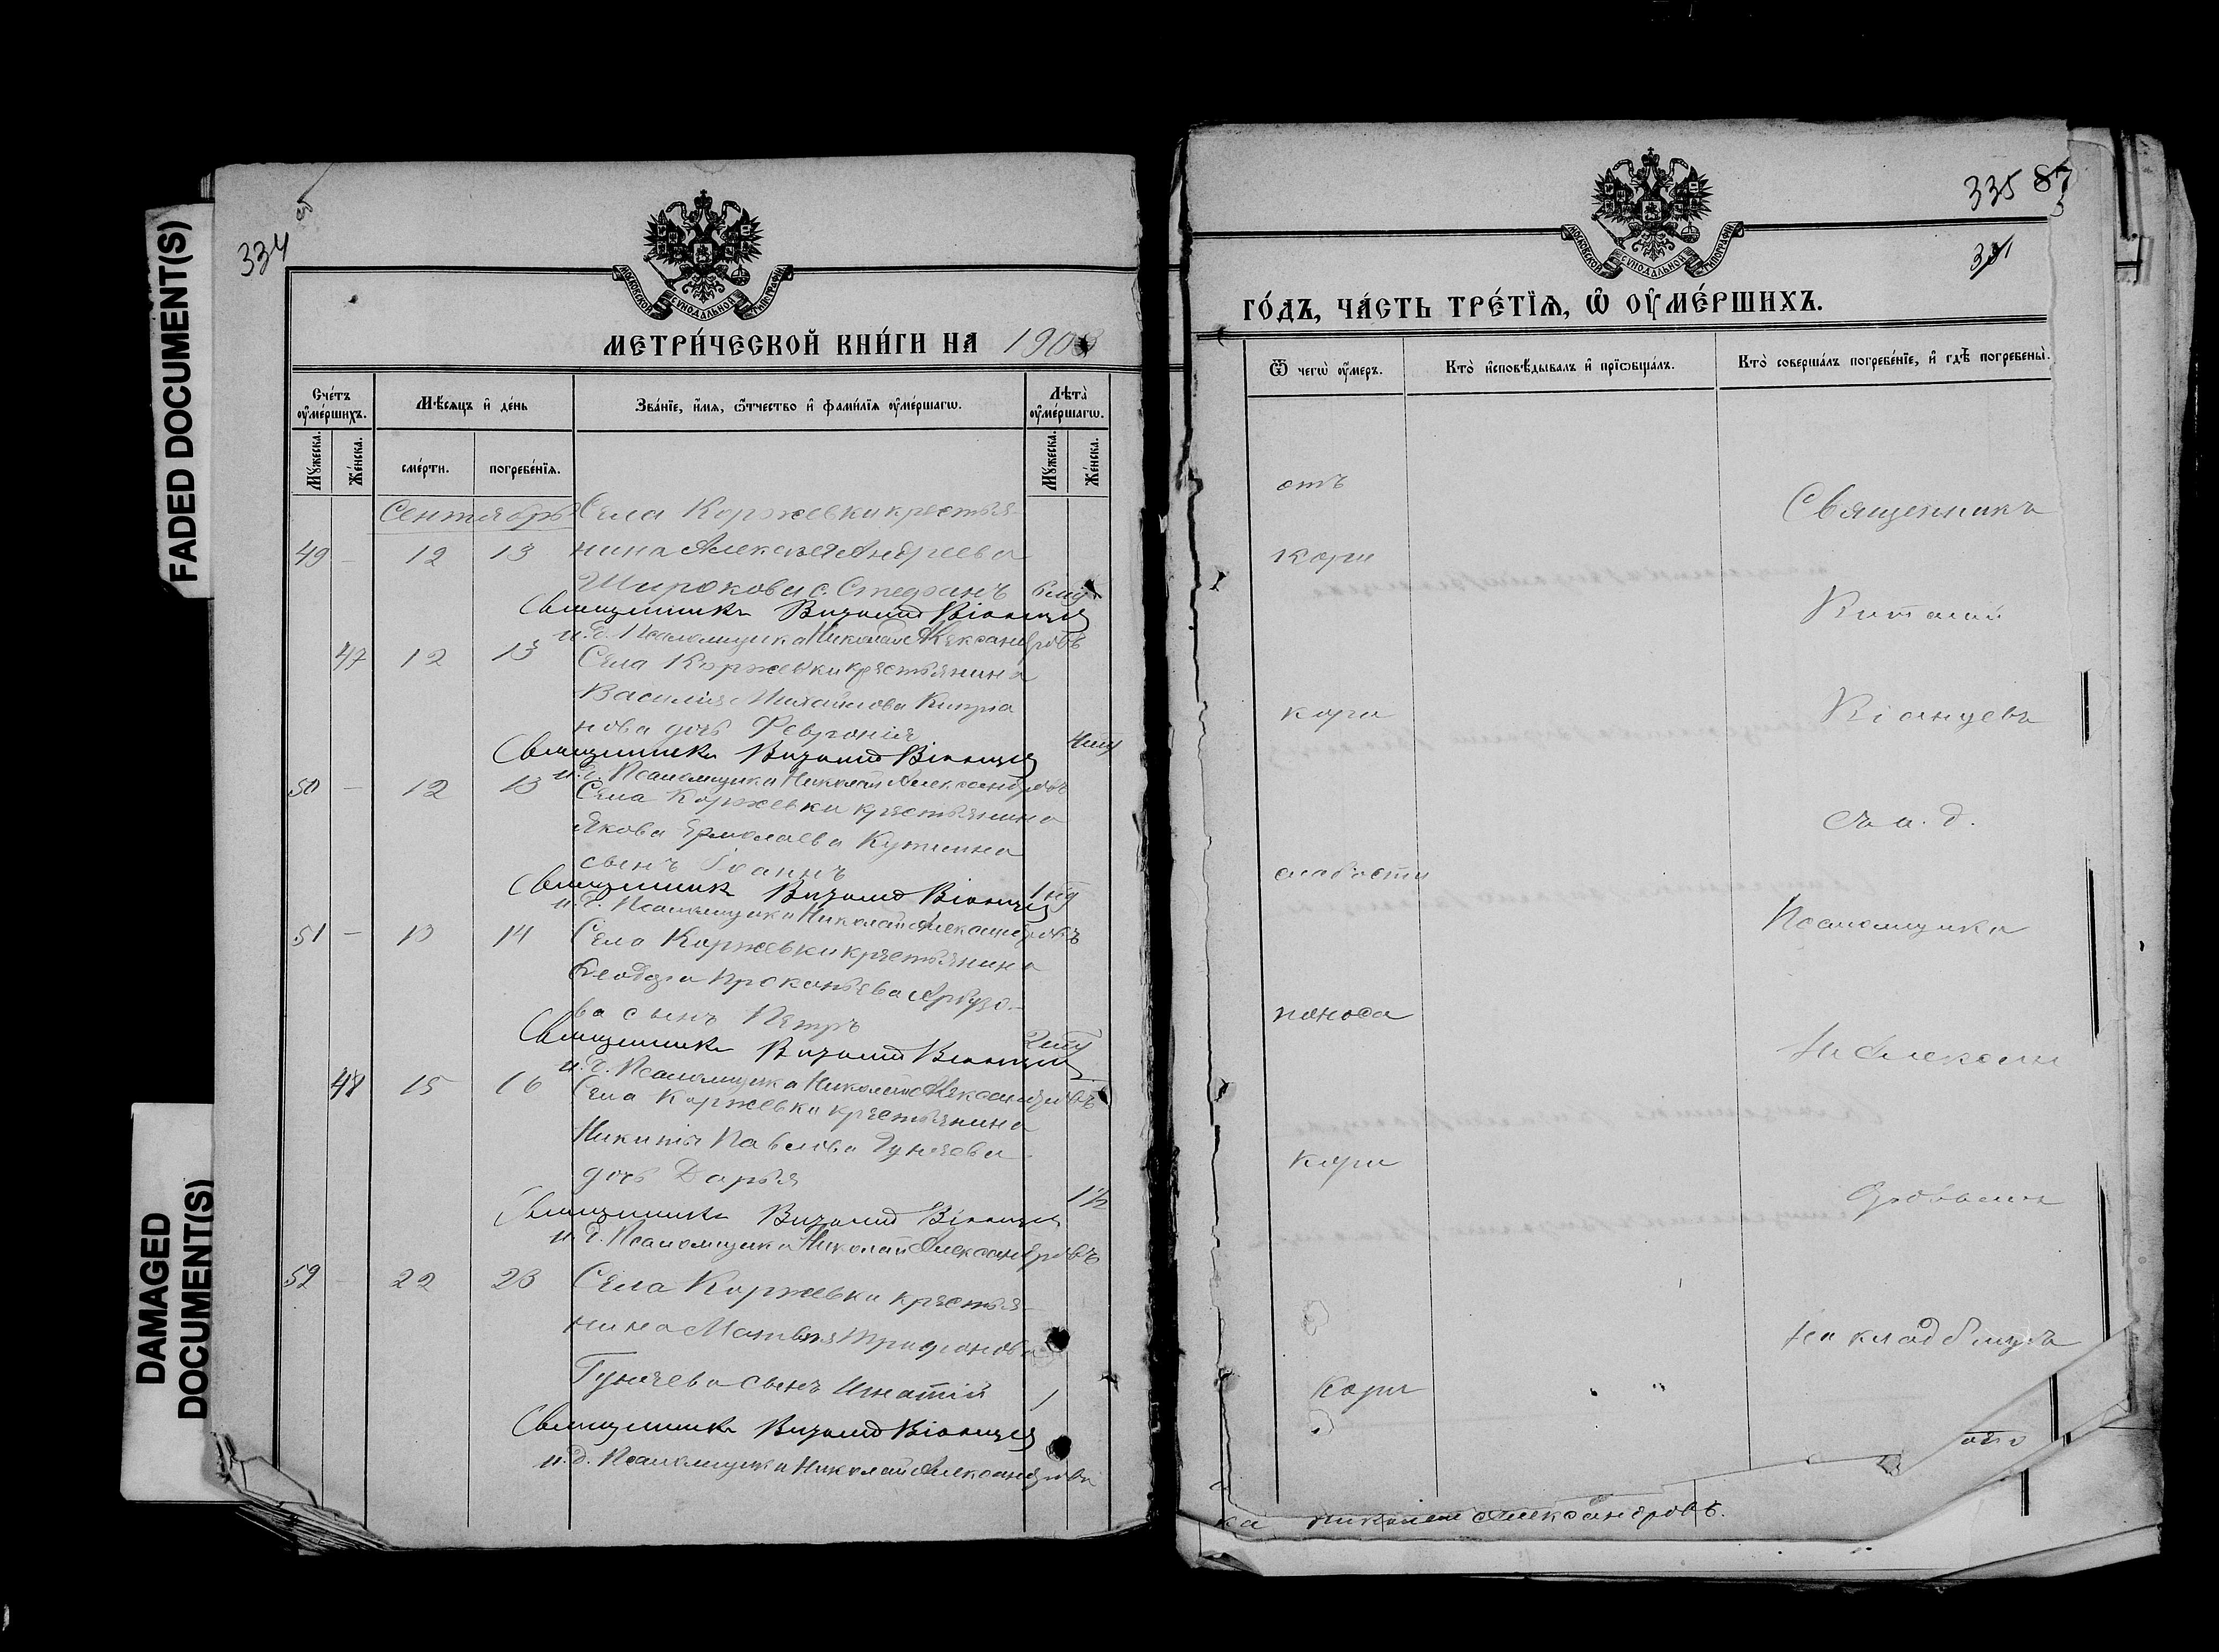 FADED DOCUMENT(S)
DAMAGED
DOCUMENT(S)
334
МОСКОВСКОЙ СУНОДАЛЬНОЙ ТИПОГРАФІИ
МЕТРИ́ЧЕСКОЙ КНИ́ГИ НА 190
Сче́тъ ѹ҆ме́ршихъ.
Мѣ́сѧцъ и҆ де́нь
Зва́нїе, и҆́мѧ, ѻ҆́тчество и҆ фами́лїѧ ѹ҆ме́ршагѡ.
Лѣ́та ѹ҆ме́ршагѡ.
Мꙋ́жеска.
Же́нска.
сме́рти.
погребе́нїѧ.
Мꙋ́жеска.
Же́нска.
Сентябрь Села Коржевки крестья-
49 - 12 13 нина Алексея Андреева
Широкова с. Стефанъ 6 мц
Священникъ Виталий Віанцевъ
и.д. Псаломщика Николай Александровъ
47 12 13 Села Коржевки крестьянина
Василія Михайлова Кипріа
нова дочь Февронія 4 мц
Священникъ Виталий Віанцевъ
и.д. Псаломщика Николай Александровъ
50 - 12 13 Села Коржевки крестьянина
Якова Ермолаева
сынъ Іоаннъ 1 нд
Священникъ Виталий Віанцевъ
и.д. Псаломщика Николай Александровъ
51 - 13 14 Села Коржевки крестьянина
Прокопьева Арбузо-
ва сынъ Петръ 2
Священникъ Виталий Віанцевъ
и.д. Псаломщика Николай Александровъ
48 15 16 Села Коржевки крестьянина
Никиты Павлова Гуняева
дочь Дарья 1½
Священникъ Виталий Віанцевъ
и.д. Псаломщика Николай Александровъ
52 - 22 23 Села Коржевки крестья-
нина Матвѣя Трифонова
Гуняева сынъ Игнатій 1
Священникъ Виталий Віанцевъ
и.д. Псаломщика Николай Александровъ
335 87
331
МОСКОВСКОЙ СУНОДАЛЬНОЙ ТИПОГРАФІИ
ГО́ДЪ, ЧА́СТЬ ТРЕ́ТЇѦ, Ѡ ОУ҆МЕ́РШИХЪ.
Ѿ чегѡ̀ ѹ҆́меръ.
Кто̀ и҆сповѣ́дывалъ и҆ прїѡбща́лъ.
Кто̀ соверша́лъ погребе́нїе, и҆ гдѣ̀ погребены̀.
отъ
Священникъ
кори
Виталий
кори
Віанцевъ
съ и. д.
слабости
Псаломщика
поноса
Н Алексан
кори
дровымъ
на кладбищѣ
кори
ка Николай Александровъ.